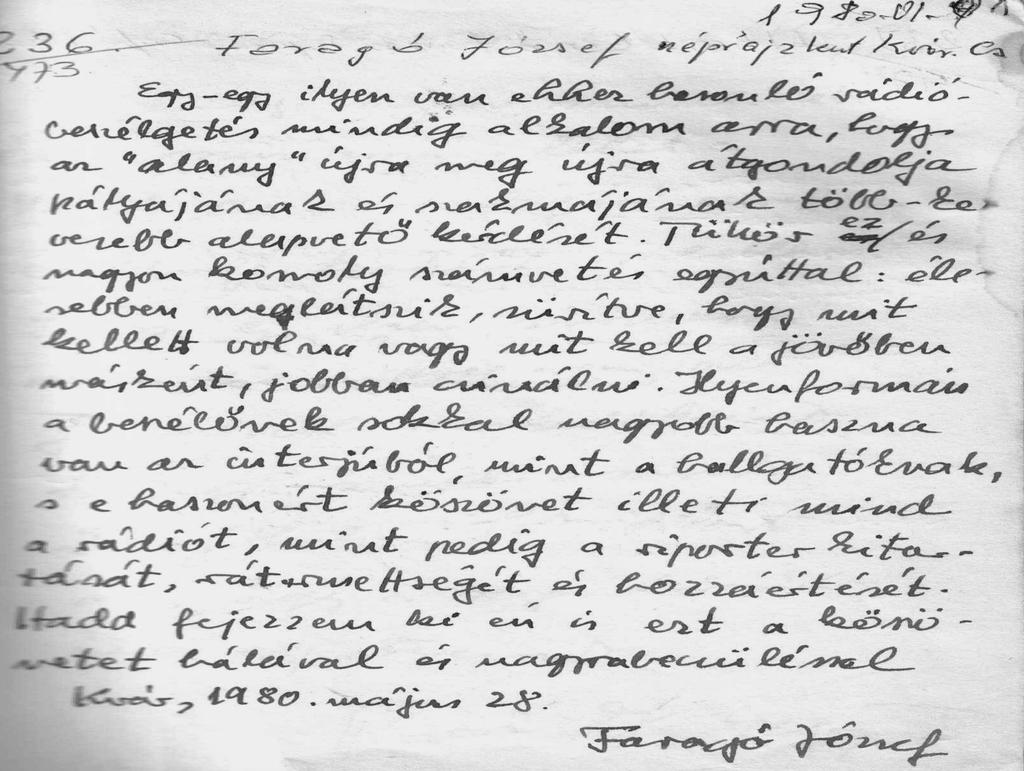 1980-VI-
236 Faragó József néprajzkut Kvár. Cs
473
Egy-egy ilyen van ehhez hasonló rádió-
beszélgetés mindig alkalom arra, hogy
az "alany" újra meg újra átgondolja
pályájának és szakmájának több-ke-
vesebb alapvető kérdését. Tükör ez és
nagyon komoly számvetés egyúttal: éle-
sebben meglátszik, sűrítve, hogy mit
kellett volna vagy mit kell a jövőben
másként, jobban csinálni. Ilyenformán
a beszélőnek sokkal nagyobb haszna
van az interjúból, mint a hallgatóknak,
s e haszonért köszönet illeti mind
a rádiót, mint pedig a riporter kitar-
tását, rátermettségét és hozzáértését.
Hadd fejezzem ki én is ezt a köszö-
netet hálával és nagyrabecsüléssel
Kvár, 1980. május 28.
Faragó József